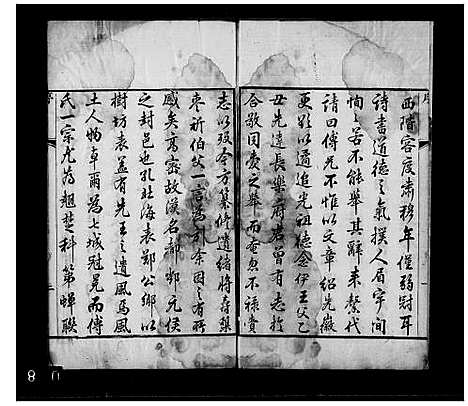 序
西階容度肅穆年僅弱冠耳
詩書道德之氣撲人眉宇間
恂恂若不能舉其辭來鰲代
請曰傅先不惟以文章紹先徽
更欲以遹追光祖德念伊王父乙
丑先達長樂府君曾有志於
合敬同愛之舉而奄忽不祿賫
志以歿今方纂修遺緒將登棗
棗祈伯父一言為引余因之有所
感矣高密故漢名郡鄧元侯
之封邑也孔北海表鄭公鄉以
樹坊表蓋有先王之遺風焉風
土人物卓爾為七城冠冕而傅
氏一宗尤為翹楚科第蟬聯
8